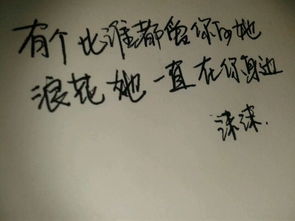 有个比谁都你的她
浪花她一直在你身边